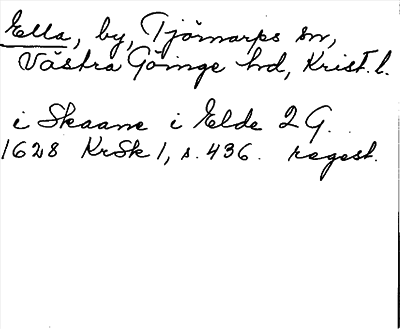 Ella, by, Tjörnarps sn,
Västra Göinge hd, Krist. l.
i Skaane i Elde 2 G.
1628 KrSk 1, s. 436. regest.